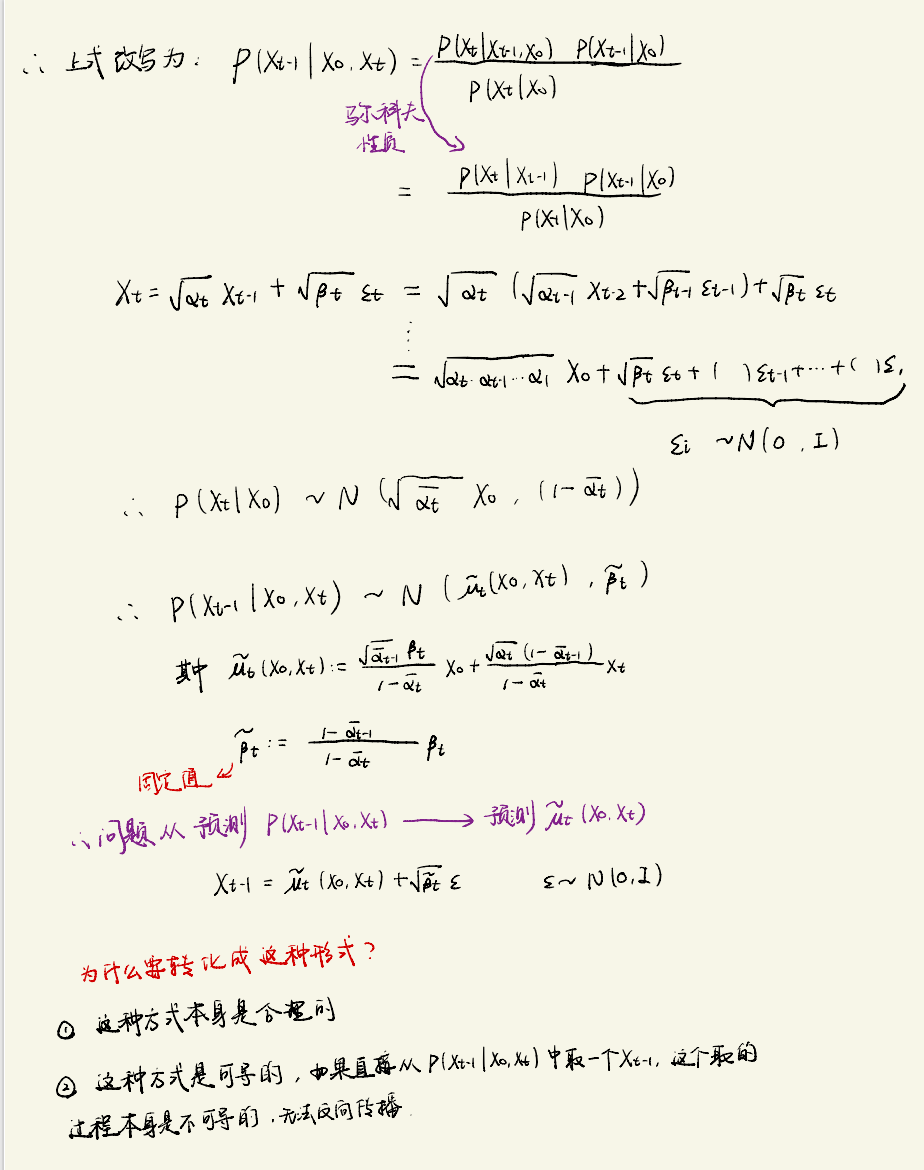 ∴ 上式改写为: P(Xt-1 | X0, Xt) = P(Xt|Xt-1, X0) P(Xt-1|X0) / P(Xt|X0)
马尔科夫
性质
= P(Xt|Xt-1) P(Xt-1|X0) / P(Xt|X0)
Xt = √αt Xt-1 + √βt εt = √αt (√αt-1 Xt-2 + √βt-1 εt-1) + √βt εt
⋮
= √αt·αt-1···α1 X0 + √βt εt + ( )εt-1 + ··· + ( )ε1
εi ~ N(0, I)
∴ P(Xt|X0) ~ N(√ᾱt X0, (1-ᾱt))
∴ P(Xt-1 | X0, Xt) ~ N(μ̃t(X0, Xt), β̃t)
其中 μ̃t(X0, Xt) := √ᾱt-1 βt / 1-ᾱt X0 + √αt (1-ᾱt-1) / 1-ᾱt Xt
β̃t := 1-ᾱt-1 / 1-ᾱt βt
固定值
∴ 问题从预测 P(Xt-1|X0, Xt) ⟶ 预测 μ̃t(X0, Xt)
Xt-1 = μ̃t(X0, Xt) + √β̃t ε ε ~ N(0, I)
为什么要转化成这种形式?
① 这种方式本身是合理的
② 这种方式是可导的, 如果直接从 P(Xt-1|X0, Xt) 中取一个Xt-1, 这个取的
过程本身是不可导的, 无法反向传播.